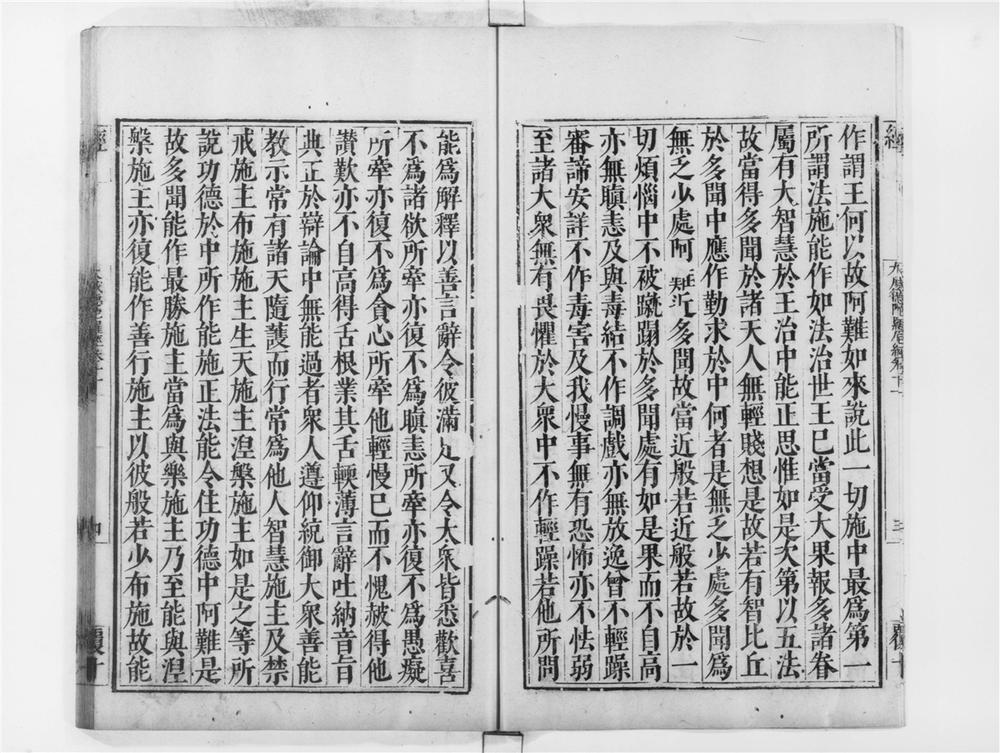 作謂王何以故阿難如來說此一切施中最爲第一
所謂法施能作如法治世王已當受大果報多諸眷
屬有大智慧於王治中能正思惟如是次第以五法
故當得多聞於諸天人無輕賤想是故若有智比丘
於多聞中應作勤求於中何者是無乏少處多聞爲
無乏少處阿難近多聞故當近般若近般若故於一
切煩惱中不被蹴蹋於多聞處有如是果而不自高
亦無瞋恚及與毒結不作調戲亦無放逸曾不輕躁
審諦安詳不作毒害及我慢事無有恐怖亦不怯弱
至諸大衆無有畏懼於大衆中不作輕躁若他所問
能爲解釋以善言辭令彼滿足又令大衆皆悉歡喜
不爲諸欲所牽亦復不爲瞋恚所牽亦復不爲愚癡
所牽亦復不爲貪心所牽他輕慢已而不愧赧得他
讃歎亦不自高得舌根業其舌輭薄言辭吐納音旨
典正於辯論中無能過者衆人遵仰統御大衆善能
教示常有諸天隨護而行常爲他人智慧施主及禁
戒施主布施施主生天施主涅槃施主如是之等所
說功德於中所作能施正法能令住功德中阿難是
故多聞能作最勝施主當爲與樂施主乃至能與涅
槃施主亦復能作善行施主以彼般若少布施故能